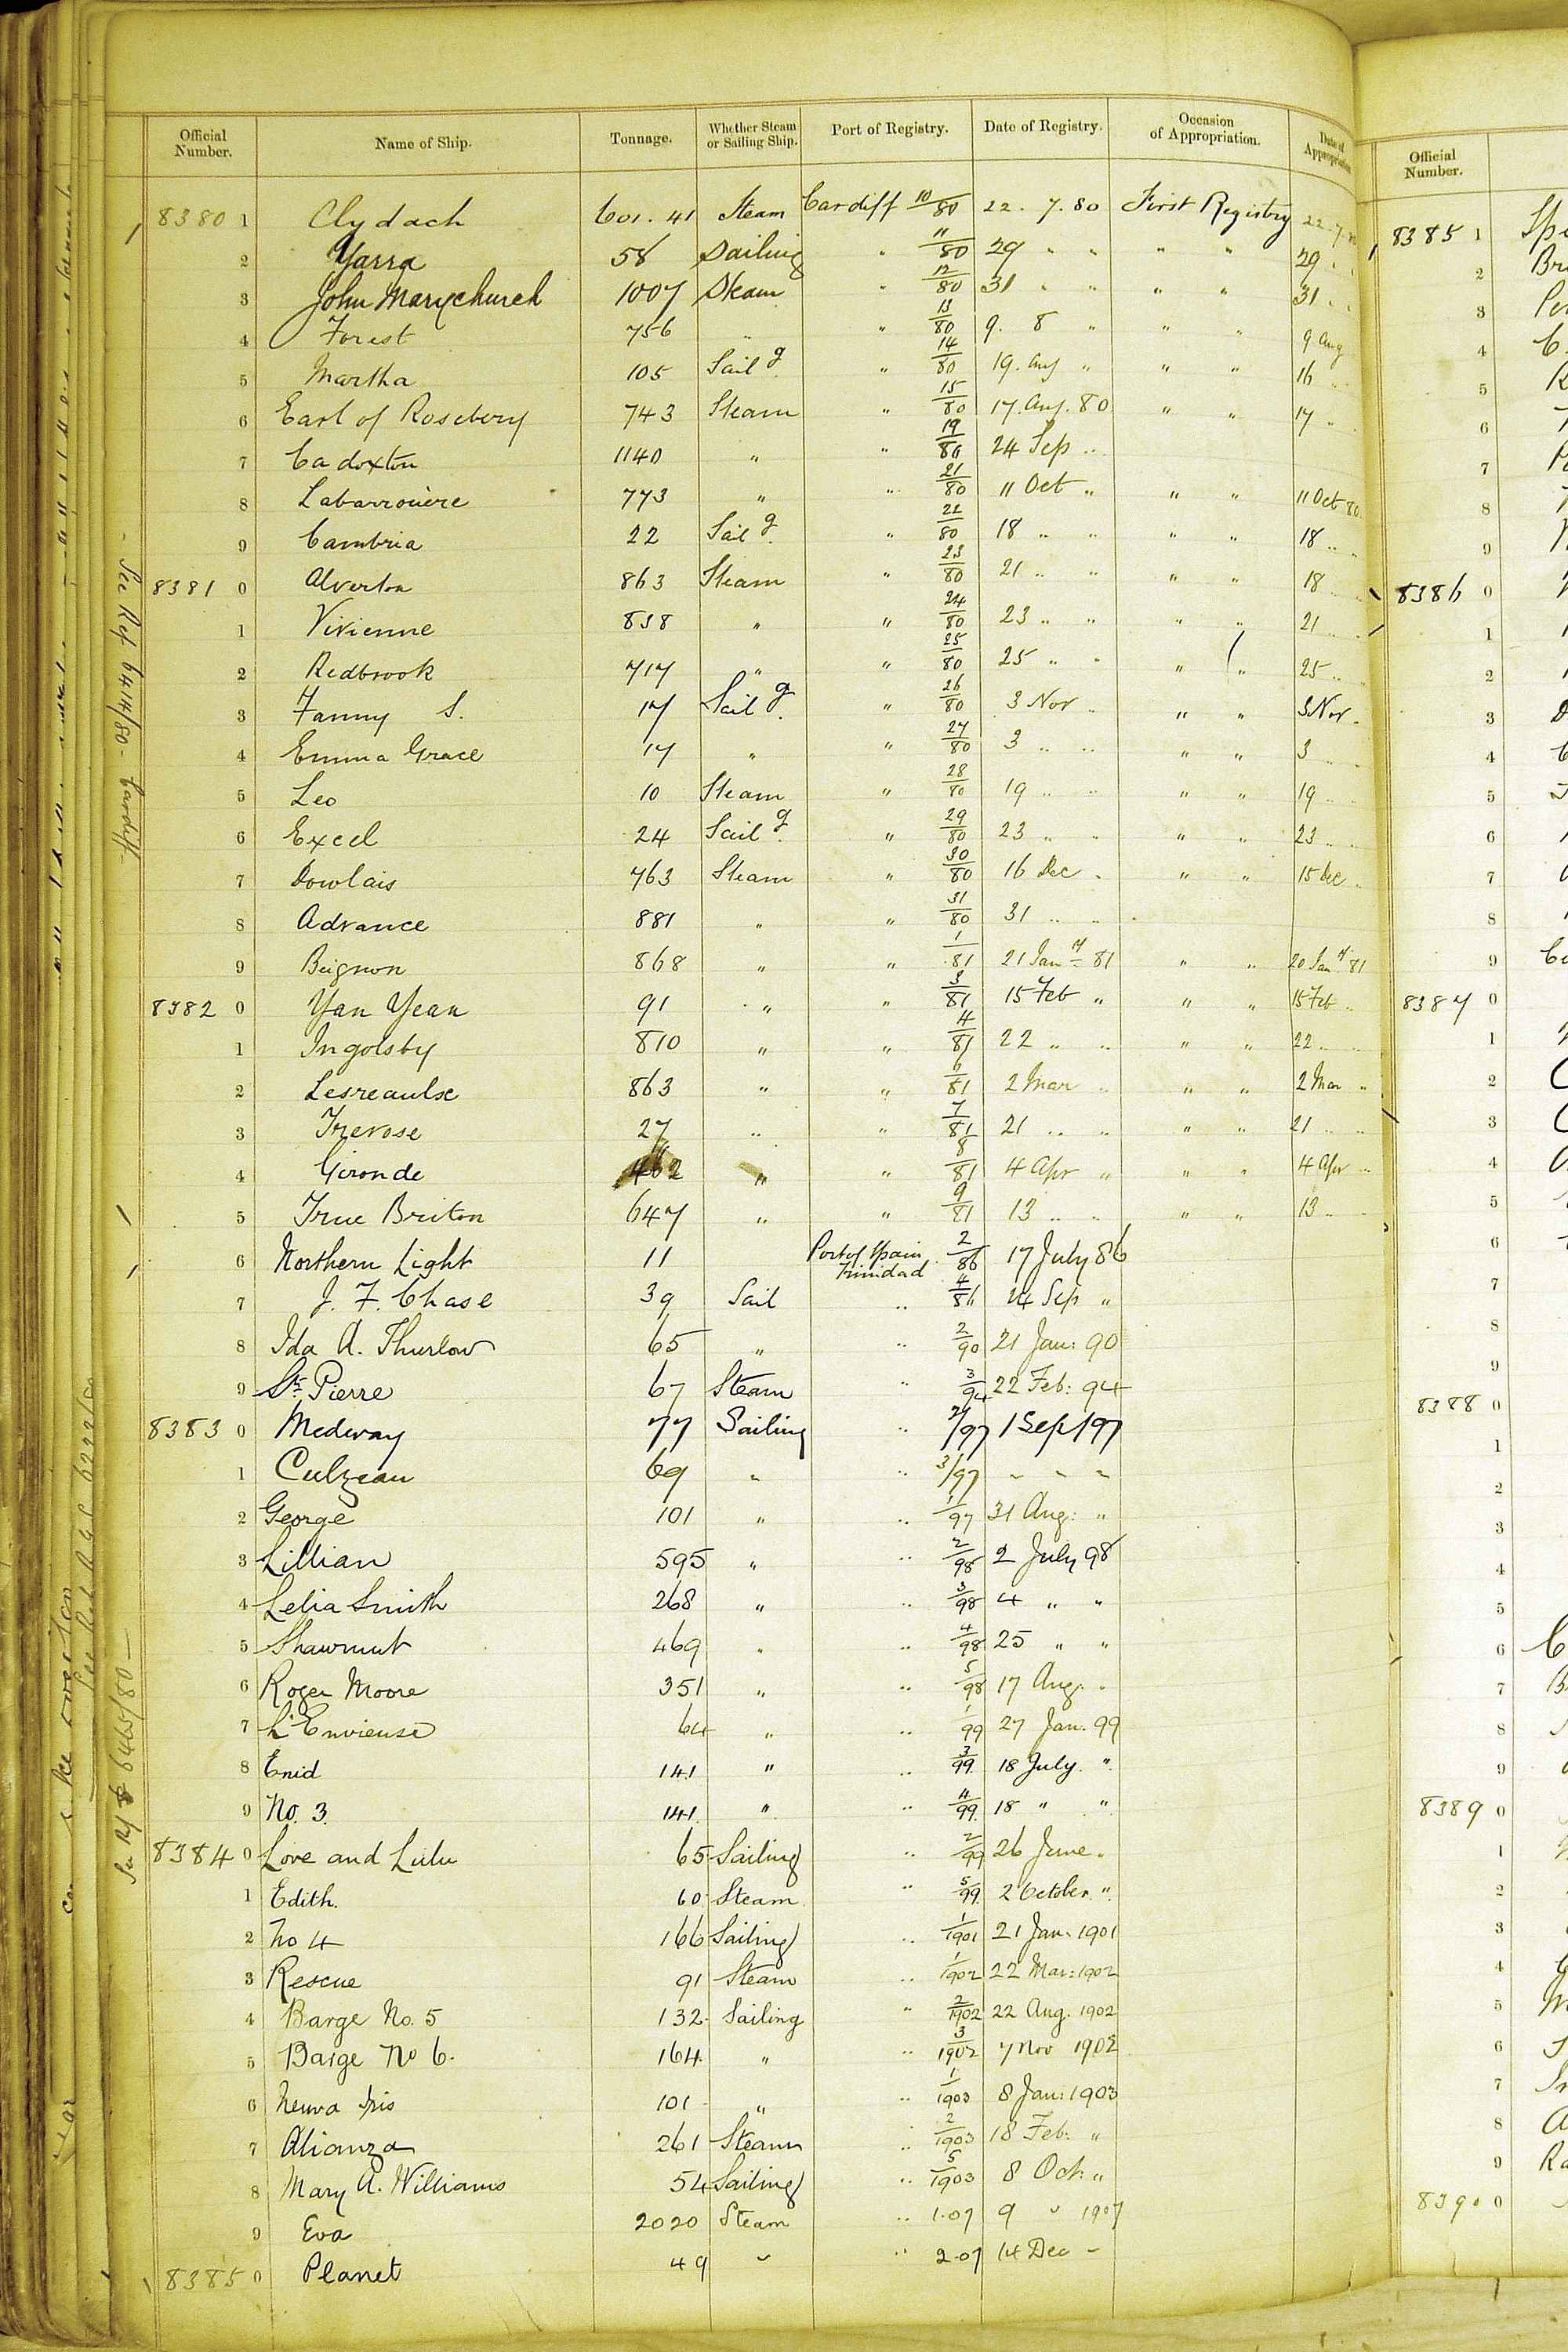 Official Number. Name of Ship. Tonnage. Whether Steam or Sailing Ship. Port of Registry. Date of Registry. Occasion of Appropriation. Date of Appropriation
8380 1 Clydach 601.41 Steam Cardiff 10/80 22. 7. 80 First Registry 22. 7.
2 Yarra 58 Sailing " 11/80 29 " " " " 29 " "
3 John Marychurch 1007 Steam " 12/80 31 " " " " 31 " "
4 Forest 756 " " 13/80 9. 8 " " " 9 Aug
5 Martha 105 Sailg " 14/80 19. Aug " " " 16 "
6 Earl of Rosebery 743 Steam " 15/80 17. Aug. 80 " " 17 " "
7 Cadoxton 1140 " " 19/80 24 Sep "
8 Labarrouère 773 " " 21/80 11 Oct " " " 11 Oct 80
9 Cambria 22 Sailg " 22/80 18 " " " " 18 " "
8381 0 Alverton 863 Steam " 23/80 21 " " " " 18 " "
1 Vivienne 838 " " 24/80 23 " " " " 21 " "
2 Redbrook 717 " " 25/80 25 " " " " 25 " "
3 Fanny S. 17 Sailg " 26/80 3 Nov " " " 3 Nov "
4 Emma Grace 17 " " 27/80 3 " " " " 3 " "
5 Leo 10 Steam " 28/80 19 " " " " 19 " "
6 Excel 24 Sailg " 29/80 23 " " " " 23 " "
7 Dowlais 763 Steam " 30/80 16 Dec " " " 15 Dec "
8 Advance 881 " " 31/80 31 " "
9 Beignon 868 " " 1/81 21 Jany 81 " " 20 Jany 81
8382 0 Yan Yean 91 " " 3/81 15 Feb " " " 15 Feb "
1 Ingolsby 810 " " 4/81 22 " " " " 22 " "
2 Lesreaulx 863 " " 6/81 2 Mar " " " 2 Mar "
3 Trevose 27 " " 7/81 21 " " " " 21 " "
4 Gironde 462 " " 8/81 4 Apr " " " 4 Apr "
5 True Briton 647 " " 9/81 13 " " " " 13 " "
6 Northern Light 11 Port of Spain Trinidad 2/86 17 July 86
7 J. F. Chase 39 Sail " 4/86 24 Sep "
8 Ida A. Thurlow 65 " " 2/90 21 Jan: 90
9 St. Pierre 67 Steam " 3/94 22 Feb: 94
8383 0 Medway 77 Sailing " 2/97 1 Sep/97
1 Culzean 69 " " 3/97 " " "
2 George 101 " " 1/97 31 Aug: "
3 Lillian 595 " " 2/98 2 July 98
4 Lelia Smith 268 " " 3/98 4 " "
5 Shawmut 469 " " 4/98 25 " "
6 Roger Moore 351 " " 5/98 17 Aug. "
7 L'Envieuse 64 " " 1/99 27 Jan. 99
8 Enid 141 " " 3/99 18 July. "
9 No. 3. 141 " " 4/99 18 " "
8384 0 Love and Lulu 65 Sailing " 2/99 26 June "
1 Edith. 60 Steam " 5/99 2 October "
2 No 4 166 Sailing " 1/1901 21 Jan. 1901
3 Rescue 91 Steam " 1/1902 22 Mar: 1902
4 Barge No. 5 132 Sailing " 2/1902 22 Aug. 1902
5 Barge No 6. 164 " " 3/1902 7 Nov 1902
6 Neuva Iris 101 " " 1/1903 8 Jan: 1903
7 Alianza 261 Steam " 2/1903 18 Feb: "
8 Mary A. Williams 54 Sailing " 5/1903 8 Oct: "
9 Eva 2020 Steam " 1.07 9 " 1907
8385 0 Planet 49 " " 2.07 14 Dec "
See Ref 6414/80 - Cardiff
6465/80
Official Number.
8385 1
2 Br
3
4
5
6
7
8
9
8386 0
1
2
3
4
5
6
7
8
9
8387 0
1
2
3
4
5
6
7
8
9
8388 0
1
2
3
4
5
6
7
8
9
8389 0
1
2
3
4
5
6
7
8
9
8390 0